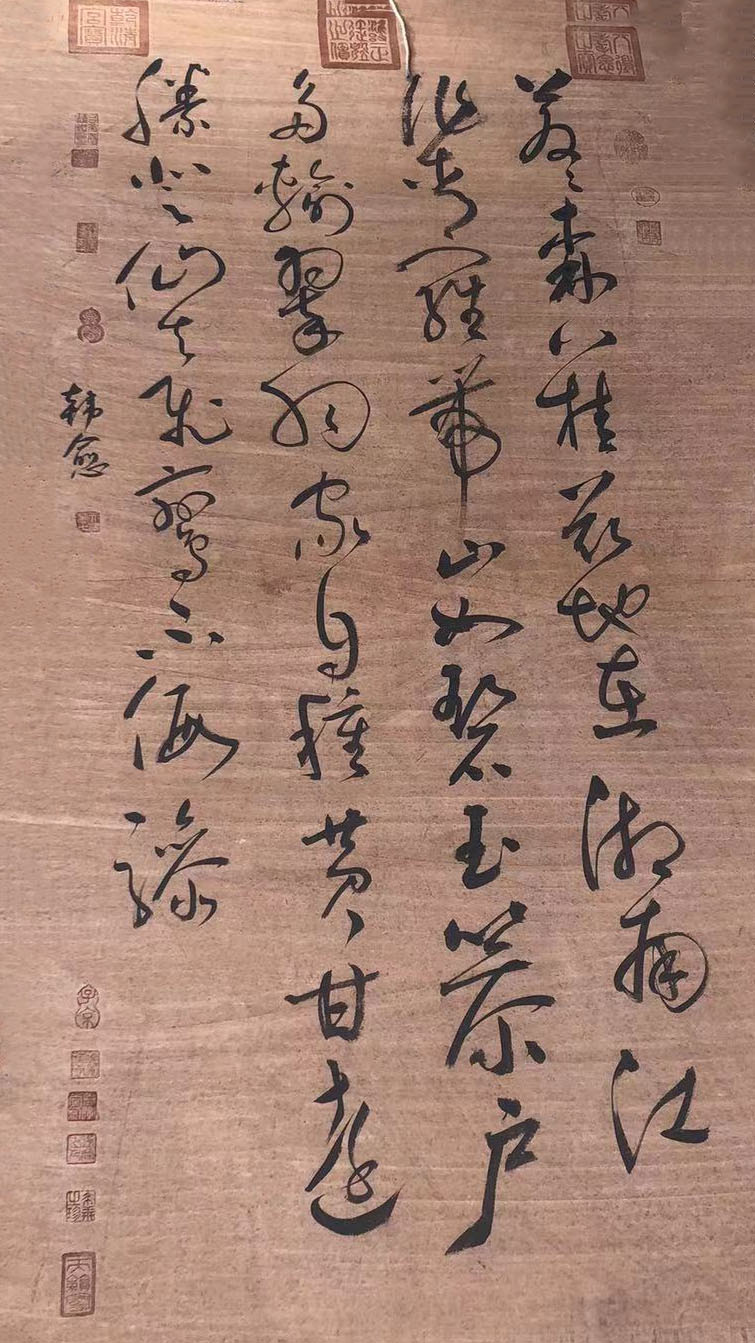 蒼々森八桂茲地在湘南江
作青羅帶山如碧玉篸户
多輸翠羽家自種黄甘遠
勝登仙去飛鸞不假驂
韩愈